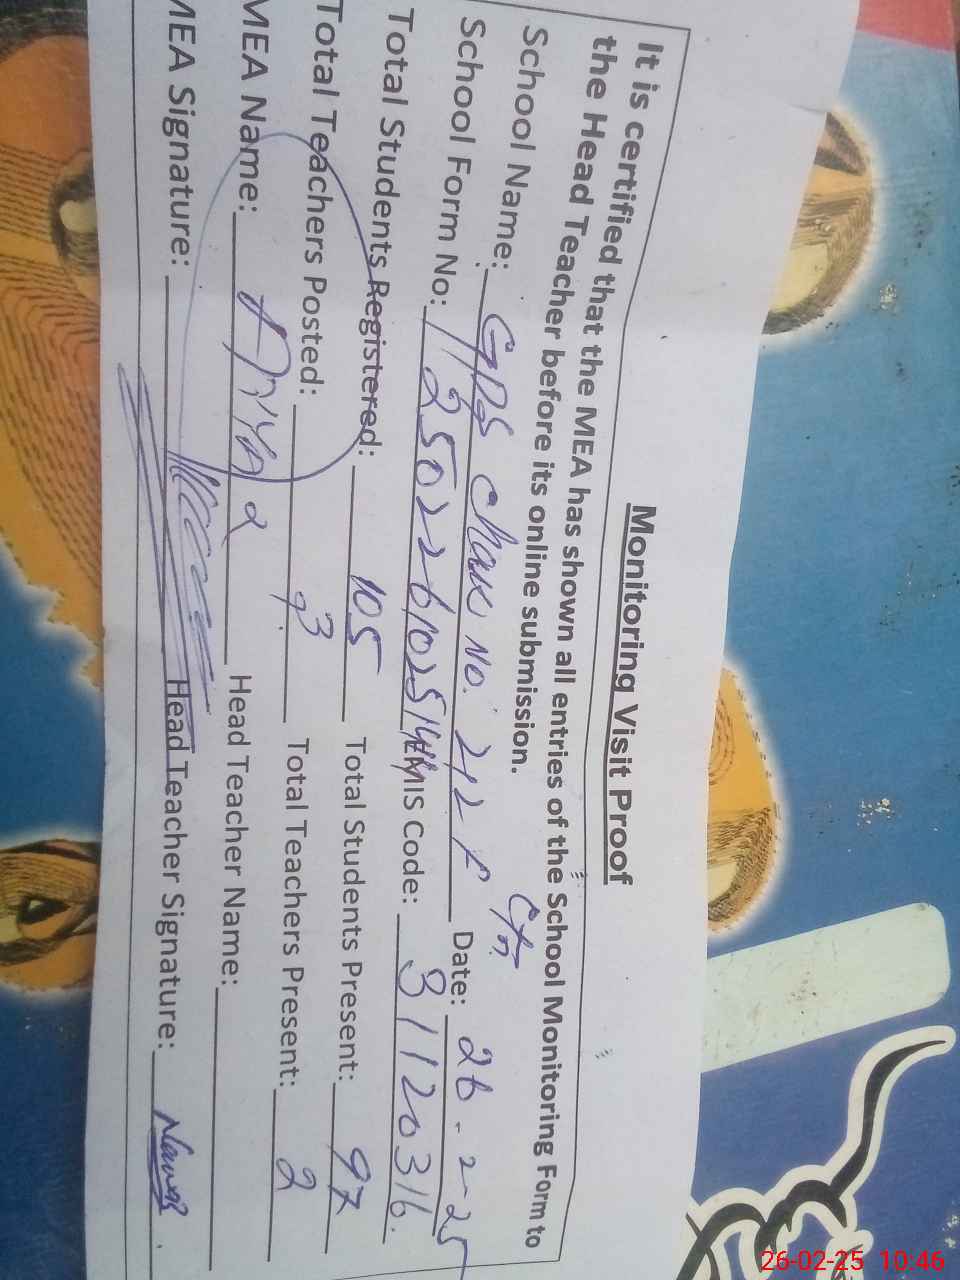 Monitoring Visit Proof
It is certified that the MEA has shown all entries of the School Monitoring Form to
the Head Teacher before its online submission.
School Name: GPS Chak No. 212 Ctn Date: 26-2-25
School Form No: 250226102514 EMIS Code: 31120316.
Total Students Registered: 105 Total Students Present: 97
Total Teachers Posted: 3 Total Teachers Present: 2
MEA Name: Head Teacher Name:
MEA Signature: Head Teacher Signature: Nawaz
26-02-25 10:46